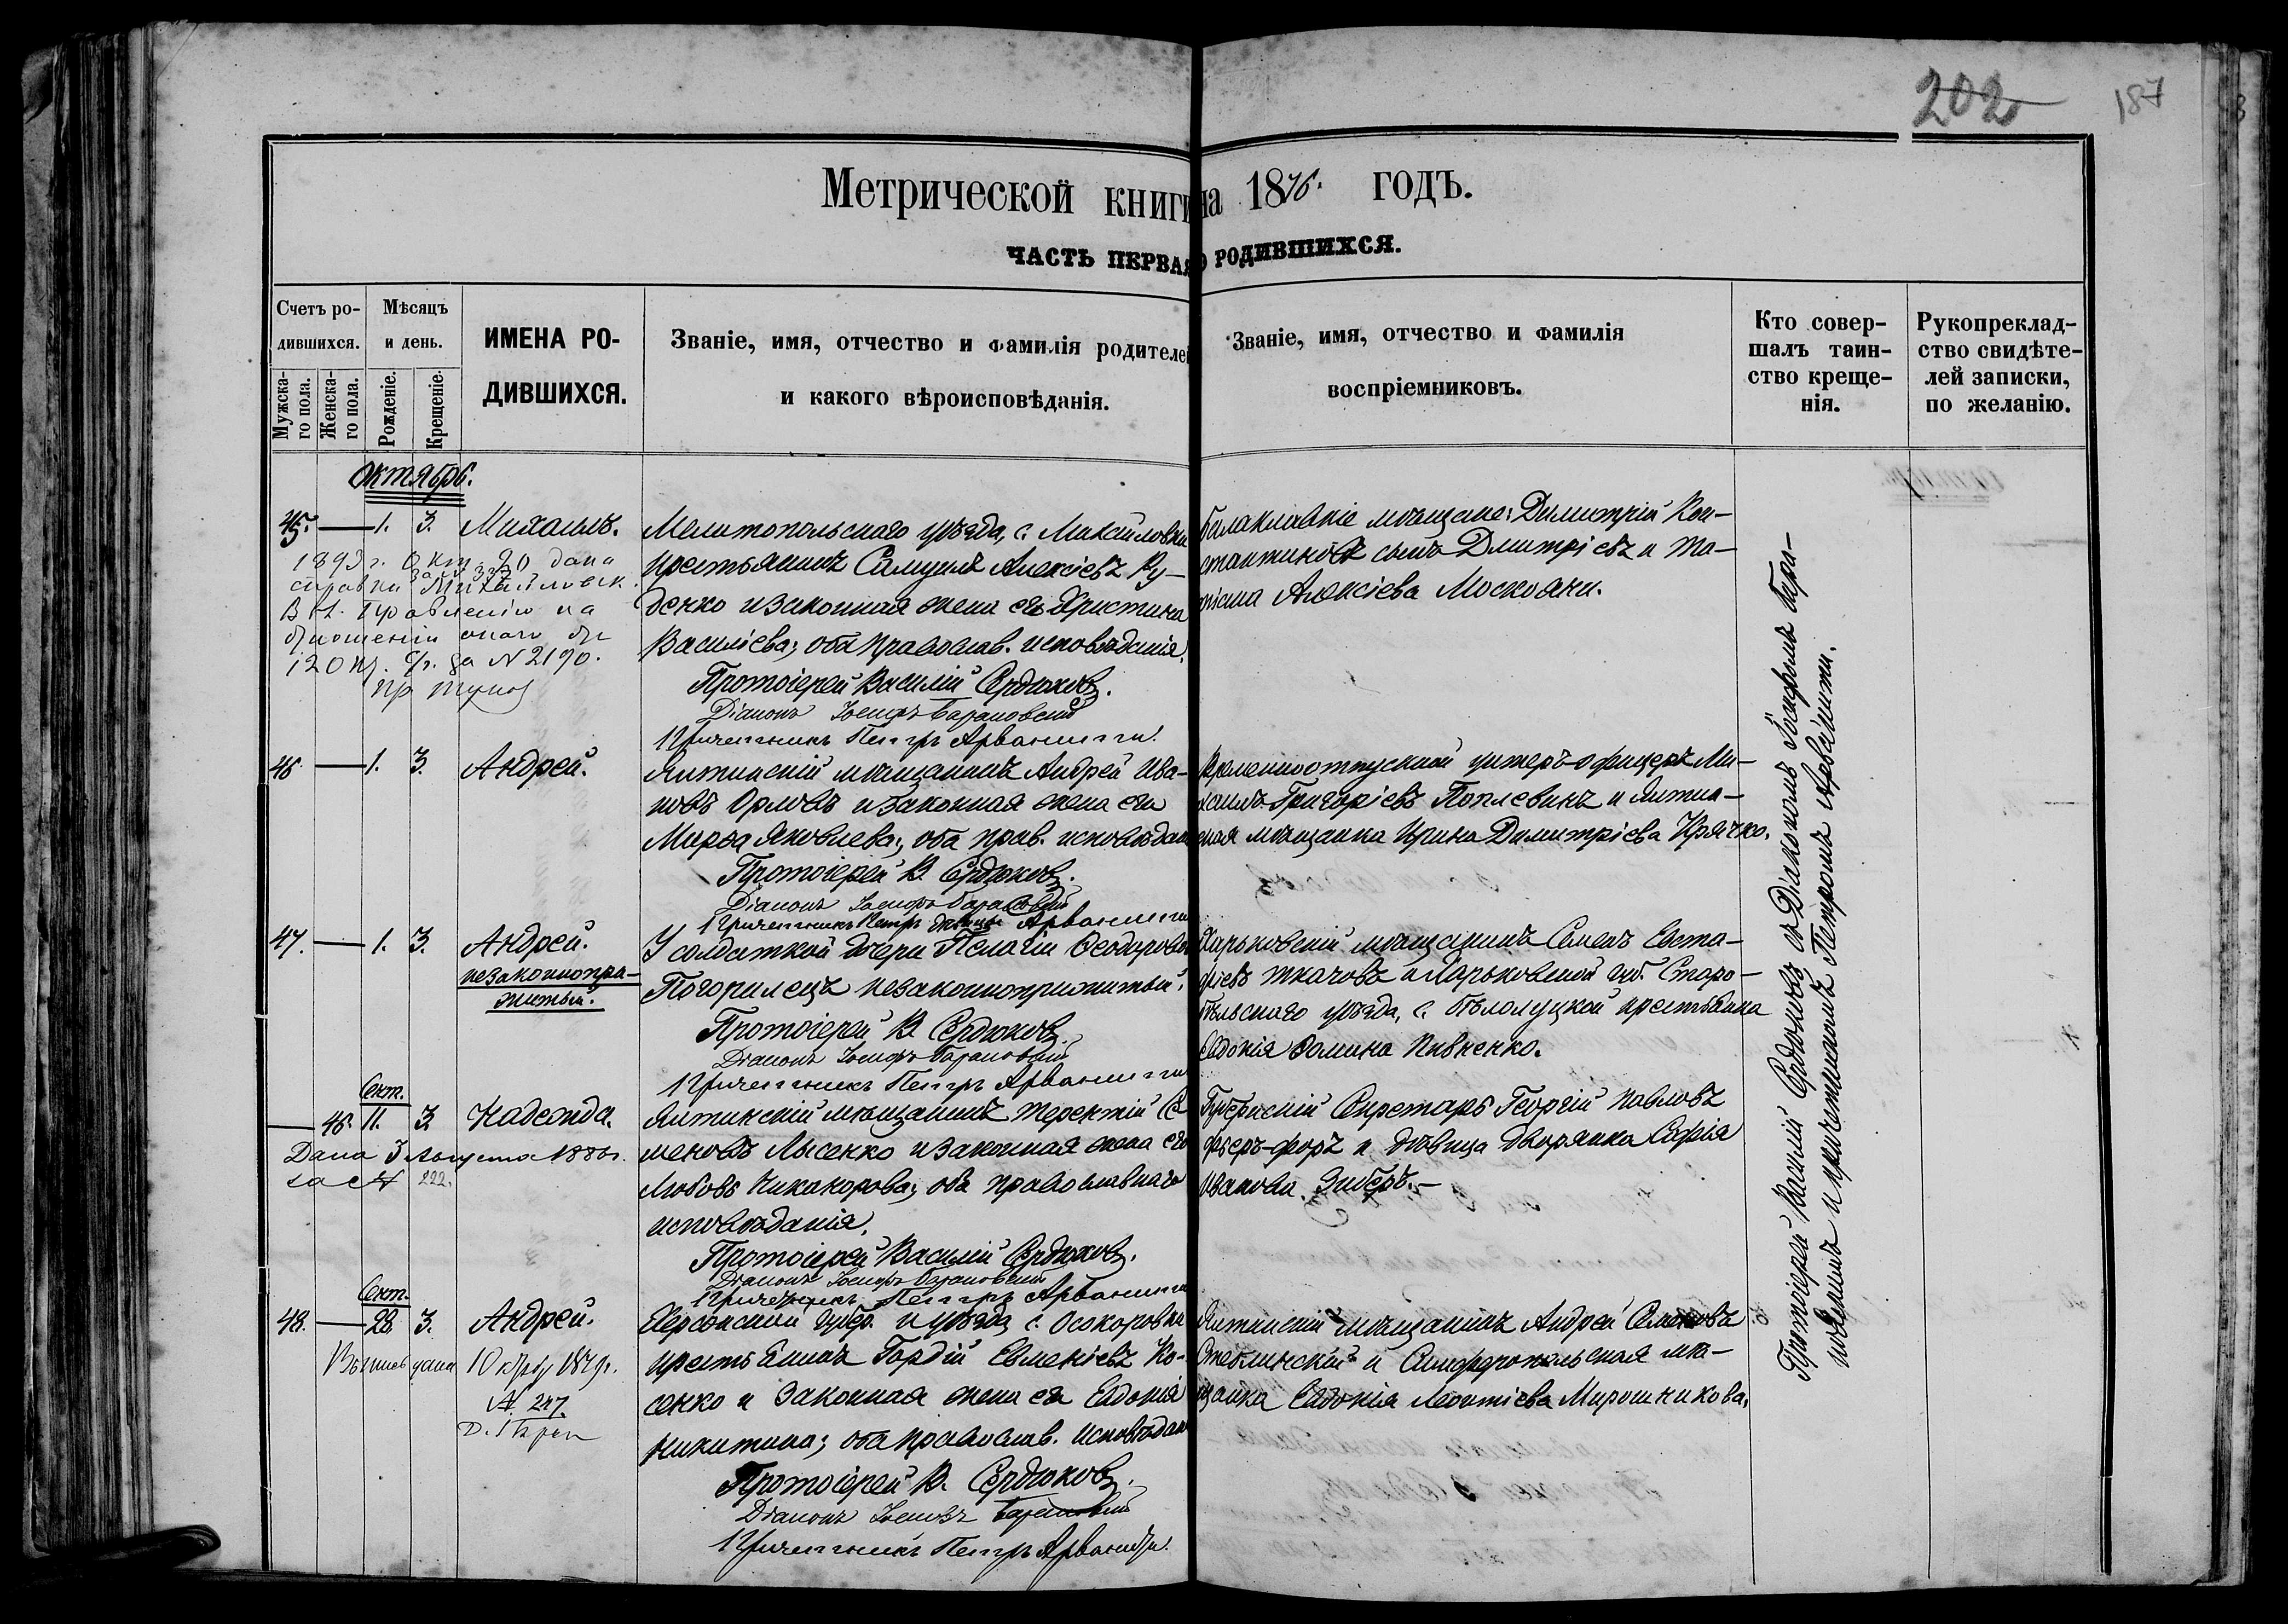 202
187
Метрической книги на 1876. годъ.
ЧАСТЬ ПЕРВАЯ О РОДИВШИХСЯ.
Счетъ ро-
дившихся.
Мужска-
го пола.
Женска-
го пола.
Мѣсяцъ
и день.
Рожденіе.
Крещеніе.
ИМЕНА РО-
ДИВШИХСЯ.
Званіе, имя, отчество и фамилія родителей
и какого вѣроисповѣданія.
Званіе, имя, отчество и фамилія
воспріемниковъ.
Кто совер-
шалъ таин-
ство креще-
нія.
Рукопреклад-
ство свидѣте-
лей записки,
по желанію.
Октябрь.
45. — 1. 3. Михаилъ.
1893 г. Окт. 20 дана
справка Михайловск.
Вол. Правленію на
отношеніи онаго отъ
за N 2190.
Мелитопольскаго уѣзда, с. Михайловки
крестьянинъ Самуилъ Алексіевъ Ру-
денко и законная жена его Христина
Василіева; оба православ. исповѣданія.
Протоіерей Василій Сердюковъ.
Діаконъ Іосифъ Барановскій
Причетникъ Петръ Арванитти.
Балаклавскіе мѣщане: Димитрій Кон-
стантиновъ сынъ Дмитріевъ и Та-
тіана Алексіева Москояни.
46 — 1. 3. Андрей.
Ялтинскій мѣщанинъ Андрей Ива-
новъ Орловъ и законная жена его
Марѳа Яковлева; оба прав. исповѣдан
Протоіерей В. Сердюковъ.
Діаконъ Іосифъ Барановскій
Причетникъ Петръ Арванитти
Временноотпускной унтеръ-офицеръ Ми-
хаилъ Григоріевъ Поплевинъ и Ялтин-
ская мѣщанка Ирина Димитріева Крячко.
47. — 1. 3. Андрей.
незаконнопри-
житый.
У солдаткой дочери Пелагіи Ѳеодоровой
Погорилецъ незаконноприжитый.
Протоіерей В. Сердюковъ.
Діаконъ Іосифъ Барановскій
Причетникъ Петръ Арванитти
Харьковскій мѣщанинъ Семенъ Евста-
фіевъ Ткачовъ и Харьковской губ. Старо-
бѣльскаго уѣзда, с. Бѣлолуцкой крестьянка
Евдокія Ѳомина Пивненко.
Сент.
— 46. 11. 3. Надежда.
Дана 3 Августа 1886 г.
за № 222.
Ялтинскій мѣщанинъ Терентій Се
меновъ Лысенко и законная жена его
Любовь Никанорова; оба православнаго
исповѣданія.
Протоіерей Василій Сердюковъ.
Діаконъ Іосифъ Барановскій
Причетникъ Петръ Арванитти
Губернскій Секретарь Георгій Павловъ
Фьеръ-форъ и дѣвица дворянка Софія
Иванова Зиберъ.—
Сент.
48. — 28. 3. Андрей.
Выпись дана 10 1879 г.
№ 247.
Херсонской губер. и уѣзда с. Осокоровки
крестьянинъ Гордій Евменіевъ Ко-
сенко и законная жена его Евдокія
Никитина; оба православ. исповѣдан
Протоіерей В. Сердюковъ.
Діаконъ Іосифъ Барановскій
Причетникъ Петръ Арванитти.
Ялтинскій мѣщанинъ Андрей Семеновъ
Стеблинскій и Симферопольская мѣ-
щанка Евдокія Леонтіева Мирошникова.
Протоіерей Василій Сердюковъ съ Діакономъ Іосифомъ Бара-
новскимъ и причетникомъ Петромъ Арванитти.